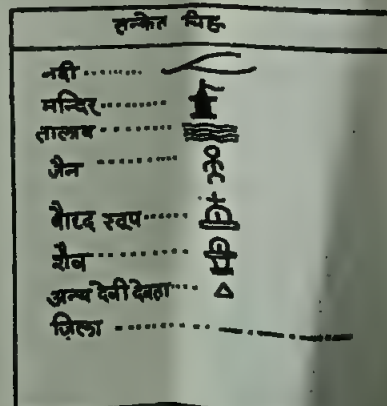 सन्केत चिह्न
नदी
मन्दिर
तालाब
जैन
बौध्द स्तूप
शैव
अन्य देवी देवता
ज़िला